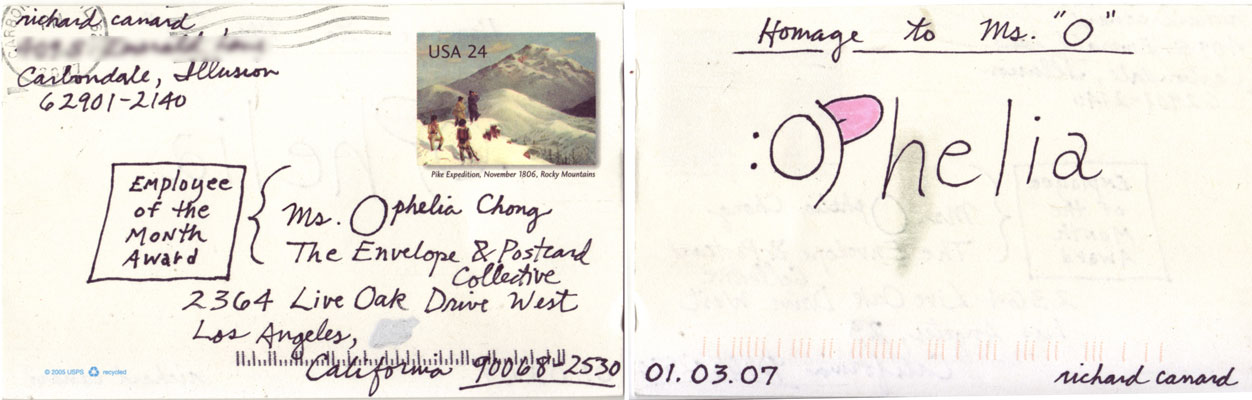 richard canard
Carbondale, Illusion
62901-2140
USA 24
Pike Expedition, November 1806, Rocky Mountains
Employee
of the
Month
Award
Ms. Ophelia Chong
The Envelope & Postcard
Collective
2364 Live Oak Drive West
Los Angeles,
California 90068-2530
© 2005 USPS recycled
Homage to Ms. "O"
:Ophelia
01.03.07
richard canard